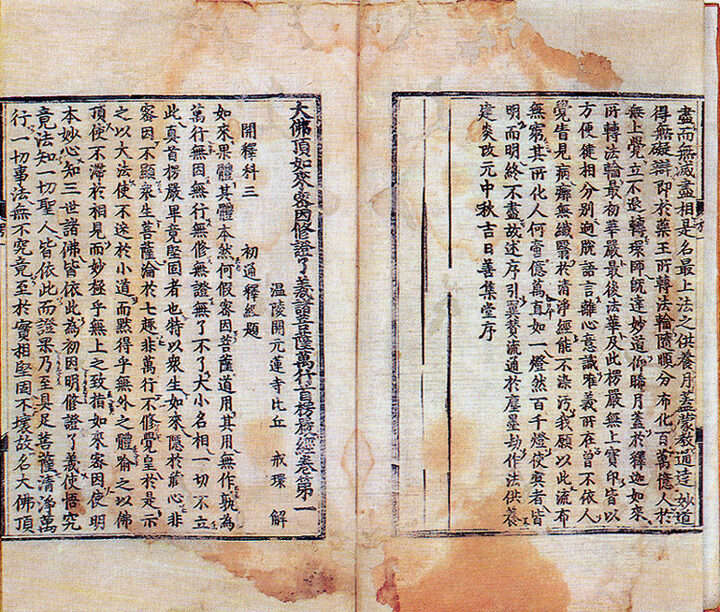 盡而無滅盡相是名最上法之供養月蓋蒙教通達妙道
得無礙辯即於藥王所轉法輪隨願分布化百萬億人於
無上覺立不退轉環師旣達妙道仰晞月蓋於釋迦如來
所轉法輪最初華嚴最後法華及此楞嚴無上寶印皆以
方便徙相分別逈脫語言離心意識唯義所在曾不依人
覺皆見病療無纖翳於淸淨經能不染汚我願以此流布
無窮其所化人何啻億萬直如一燈然百千燈使冥者皆
明而明終不盡故述序引冀贊流通於塵墨劫作法供養
建炎改元中秋吉日善集堂序
大佛頂如來密因修證了義諸菩薩萬行首楞嚴經卷第一
溫陵開元蓮寺比丘 戒環 解
開釋科三 初通釋經題
如來果體其體本然何假密因菩薩道用其用無作孰為
萬行無因無行無修無證無了不了大小名相一切不立
此真首楞嚴畢竟堅固者也特以衆生如來隱於藏心非
密因不顯衆生菩薩淪於七趣非萬行不修覺皇於是示
之以大法使不迷於小道而默得乎無外之體喩之以佛
頂使不滯於相見而妙極乎無上之致指如來密因使明
本妙心知三世諸佛皆依此為初因明修證了義使悟究
竟法知一切聖人皆依此而證果乃至具足菩薩淸淨萬
行一切事法無不究竟至於實相堅固不壞故名大佛頂